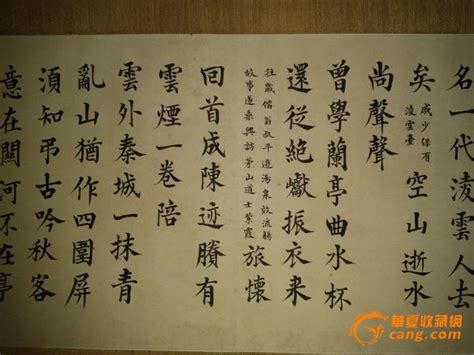 名一代凌雲人去
矣 成少保有凌雲臺 空山逝水
尚聲聲
曾學蘭亭曲水杯
還從絕巘振衣来
往歲偕翁叔平遊湯泉效流觴
故事遂乘興訪茅山道士紫霞 旅懷
回首成陳迹賸有
雲煙一卷陪
雲外秦城一抹青
亂山猶作四圍屏
須知弔古吟秋客
意在關河不在亭
華夏收藏網
cang.com